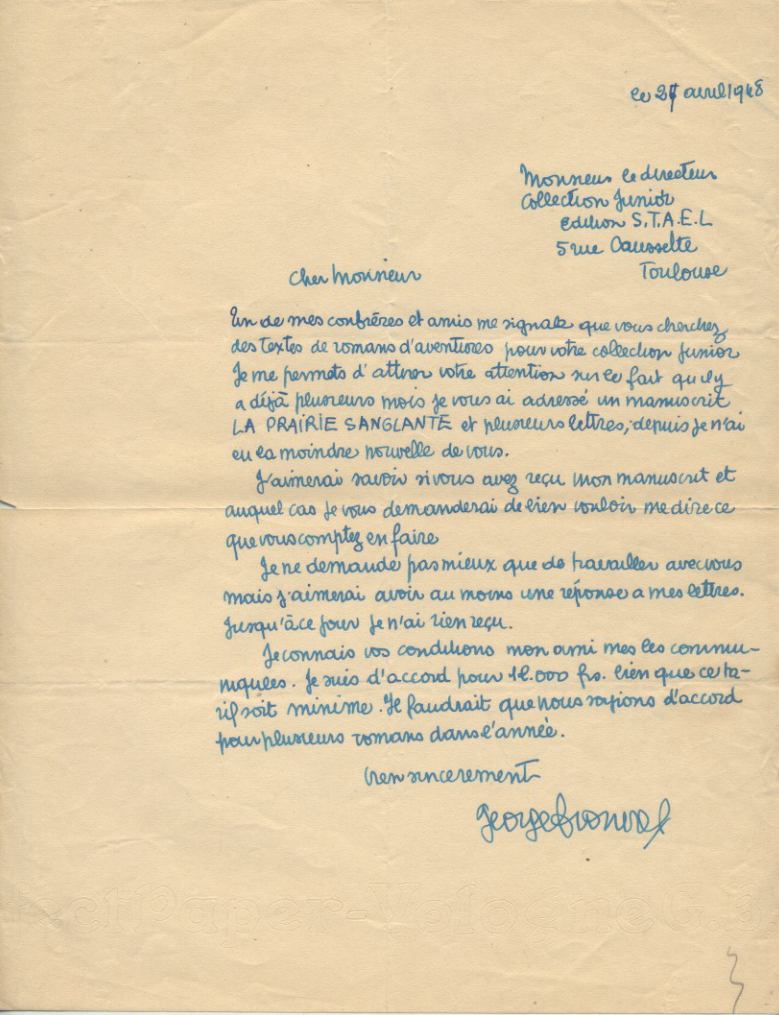 le 27 avril 1948
Monsieur le directeur
Collection Junior
Edition S.T.A.E.L
5 rue Caussette
Toulouse
Cher Monsieur
Un de mes confrères et amis me signale que vous cherchez
des textes de romans d'aventures pour votre collection Junior
Je me permets d'attirer votre attention sur le fait qu'il y
a déjà plusieurs mois je vous ai adressé un manuscrit
LA PRAIRIE SANGLANTE et plusieurs lettres, depuis je n'ai
eu la moindre nouvelle de vous.
J'aimerai savoir si vous avez reçu mon manuscrit et
auquel cas je vous demanderai de bien vouloir me dire ce
que vous comptez en faire
Je ne demande pas mieux que de travailler avec vous
mais j'aimerai avoir au moins une réponse a mes lettres.
Jusqu'à ce jour je n'ai rien reçu.
Je connais vos conditions mon ami mes les commu-
niquées. Je suis d'accord pour 12.000 frs. bien que ce ta-
rif soit minime. Il faudrait que nous soyions d'accord
pour plusieurs romans dans l'année.
bien sincerement
George